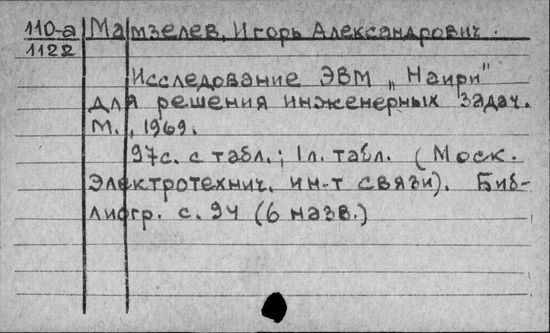 110-а Мамзелев, Игорь Александрович.
1122
Исследование ЭВМ „Наири"
для решения инженерных задач.
М., 1969.
97с. с табл.; 1л. табл. (Моск.
Электротехнич. ин-т связи). Биб-
лиогр. с. 94 (6 назв.)